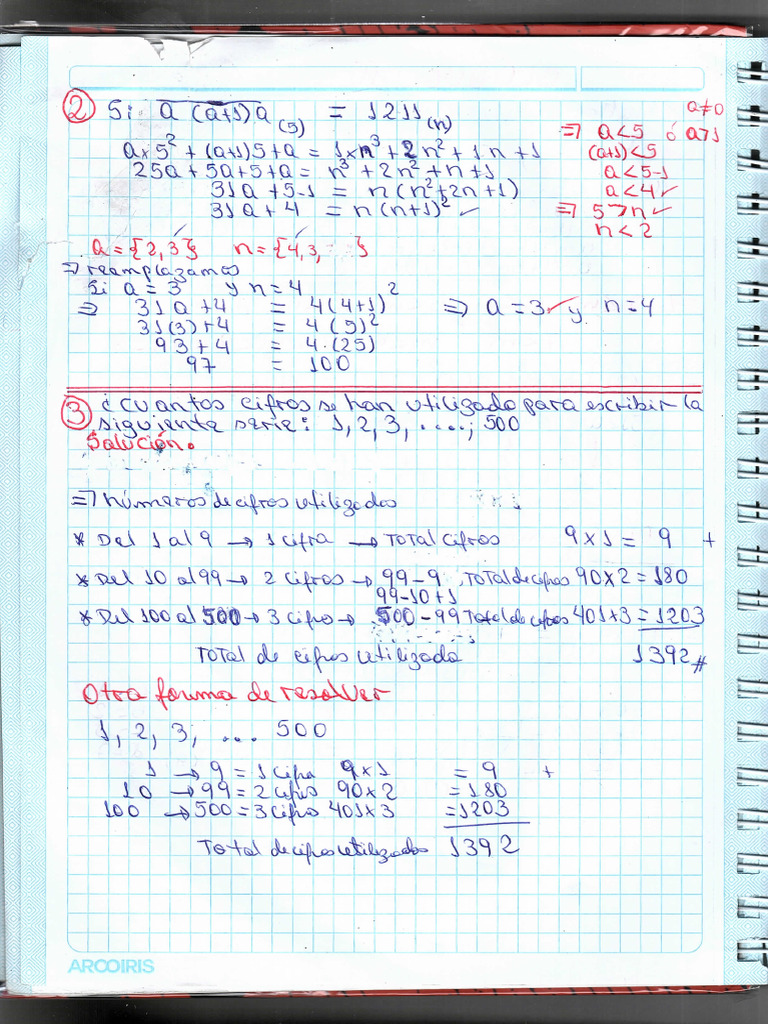 a≠0
② Si a(a+1)a(5) = 1211(n) ⇒ a<5 ó a>1
a×5² + (a+1)5+a = 1×n³ + 2n² + 1n + 1 (a+1)<5
25a + 5a + 5 + a = n³ + 2n² + n + 1 a<5-1
31a + 5-1 = n(n²+2n+1) a<4 ✓
31a + 4 = n(n+1)² ✓ ⇒ 5>n ✓
n<2
a={2,3} n={4,3, }
⇒ reamplazamos
Si a = 3 y n = 4
⇒ 31a + 4 = 4(4+1)² ⇒ a = 3 ✓ y n = 4
31(3)+4 = 4(5)²
93 + 4 = 4·(25)
97 = 100
③ ¿Cuantos cifros se han utilizado para escribir la
siguiente serie: 1, 2, 3, ....; 500
Solución.
⇒ números de cifros utilizados
* Del 1 al 9 → 1 cifra → Total cifros 9×1 = 9 +
* Del 10 al 99 → 2 cifros → 99-9 Total de cifros 90×2 = 180
99-10+1
* Del 100 al 500 → 3 cifro → 500-99 Total de cifros 401×3 = 1203
Total de cifros utilizado 1392 #
Otra forma de resolver
1, 2, 3, ... 500
1 → 9 = 1 cifra 9×1 = 9 +
10 → 99 = 2 cifros 90×2 = 180
100 → 500 = 3 cifro 401×3 = 1203
Total de cifros utilizados 1392
ARCOIRIS